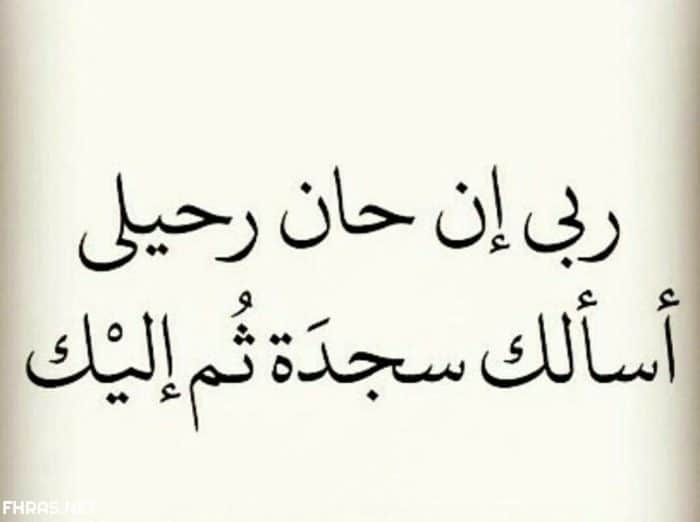 ربى إن حان رحيلى
أسألك سجدَة ثُم إليْك
FHRAS.NET